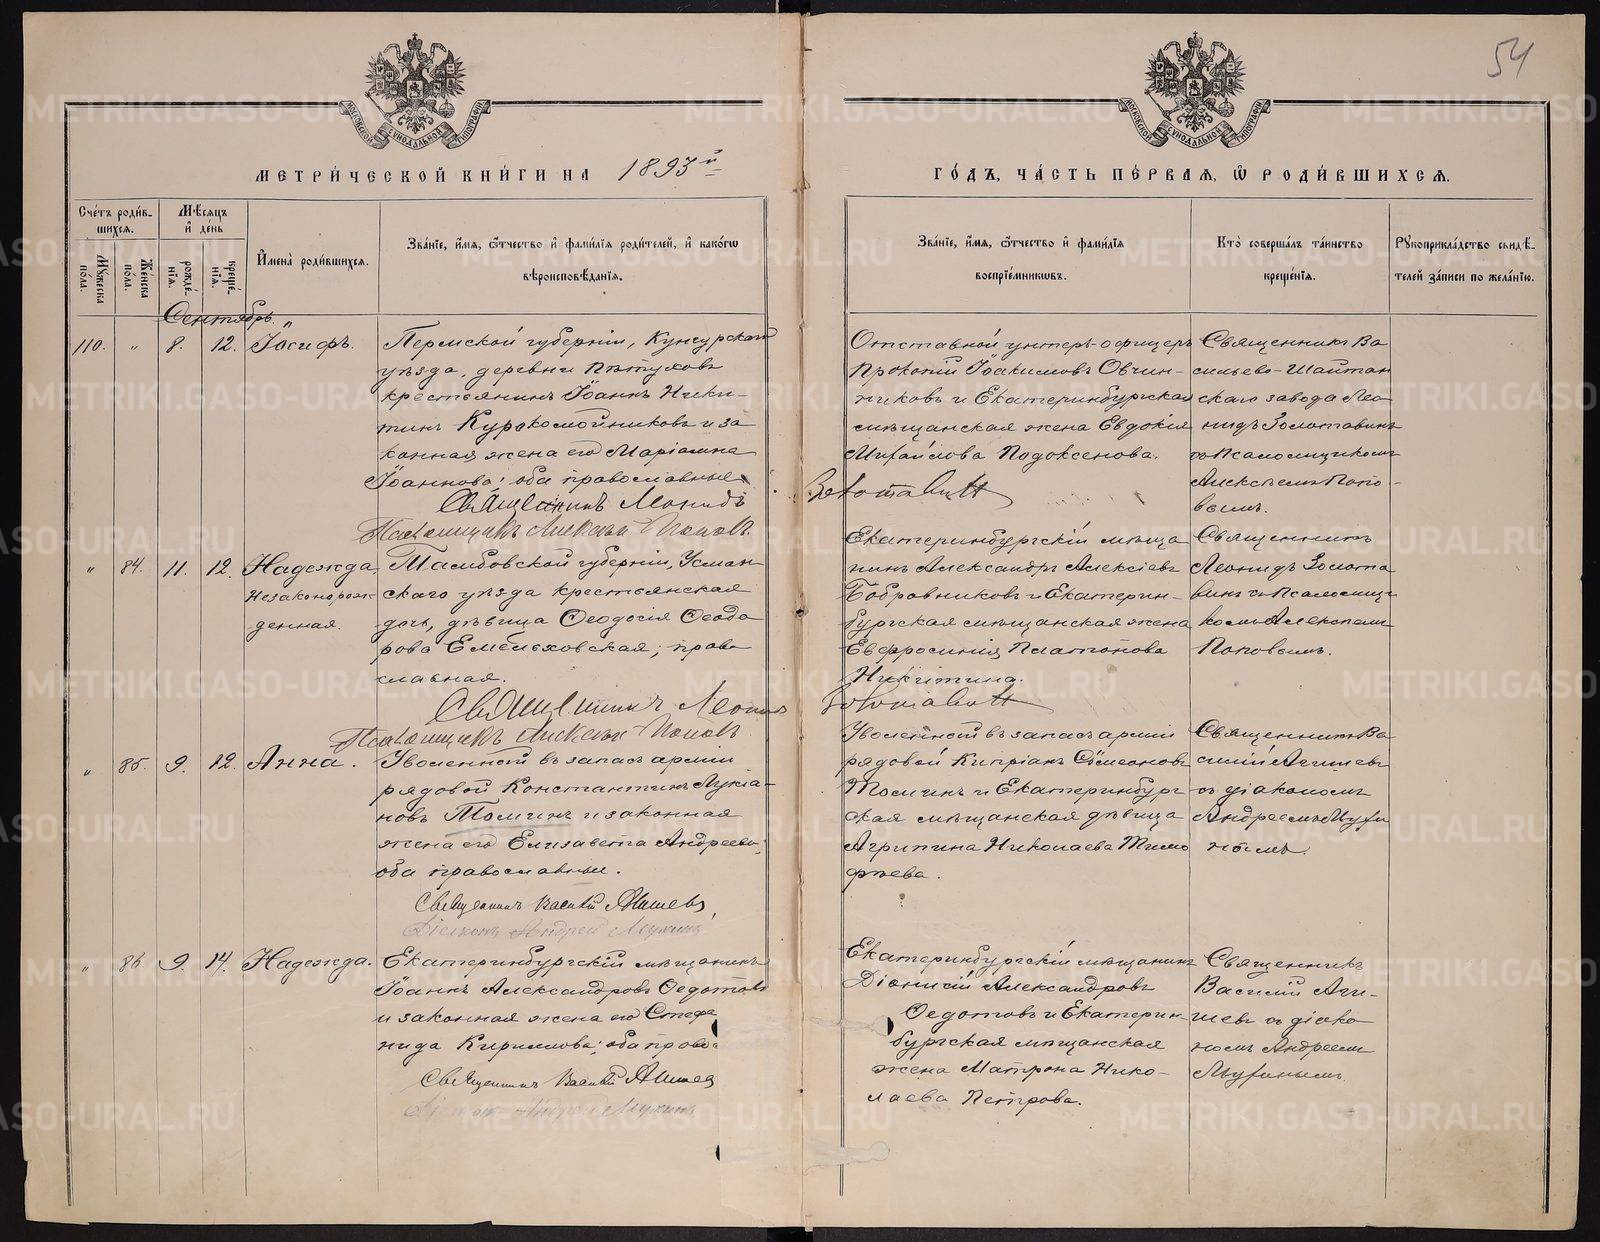 54
МЕТРИ́ЧЕСКОЙ КНИ́ГИ НА 1893й
ГО́ДЪ, ЧА́СТЬ ПЕ́РВАЯ, Ѿ РОДИ́ВШИХСЯ.
Сче́тъ роди́в-
шихся.
Мѣ́сяцъ
и҆ де́нь
Мꙋжеска по́ла.
Же́нска по́ла.
рожде́-
нїя.
креще́-
нїя.
И҆мена̀ роди́вшихся.
Зва́нїе, и҆́мя, ѻ҆́тчество и҆ фами́лїя роди́телей, и҆ како́гѡ
вѣроисповѣ́данїя.
Зва́нїе, и҆́мя, ѻ҆́тчество и҆ фами́лїя
воспрїе́мникѡвъ.
Кто̀ соверша́лъ та́инство
креще́нїя.
Рꙋкоприкла́дство свидѣ́-
телей за́писи по жела́нїю.
Сентябрь.
110. " 8. 12. Іосифъ.
Пермской губерніи, Кунгурскаго
уѣзда, деревни Пѣтуховъ
крестьянинъ Іоаннъ Ники-
тинъ Курокомойниковъ и за
конная жена его Маріамна
Іоаннова; оба православные
Священникъ Леонидъ
Псаломщикъ Алексѣй Поповъ.
Отставной унтеръ-офицеръ
Прокопій Іоакимовъ Овчин-
никовъ и Екатеринбургская
мѣщанская жена Евдокія
Михайлова Подоксенова.
Золотавинъ
Священникъ Ва
сильево-Шайтан
скаго завода Лео
нидъ Золотавинъ
съ псаломщикомъ
Алексѣемъ Попо-
вымъ.
" 84. 11. 12. Надежда
Незаконорож
денная.
Тамбовской губерніи, Усман-
скаго уѣзда крестьянская
дочь, дѣвица Ѳеодосія Ѳеодо
рова Емельховская; право
славная.
Священникъ Леонидъ
Псаломщикъ Алексѣй Поповъ
Екатеринбургскій мѣща
нинъ Александръ Алексіевъ
Бобровниковъ и Екатерин-
бургская мѣщанская жена
Евфросинія Платонова
Никитина.
Золотавинъ
Священникъ
Леонидъ Золота
винъ съ псаломщи
комъ Алексѣемъ
Поповымъ.
" 85. 9. 12. Анна.
Уволенный въ запасъ арміи
рядовой Константинъ Лукіа-
новъ Томинъ и законная
жена его Елизавета Андреева;
оба православные.
Священникъ Василій Агишевъ,
Діаконъ Андрей Мухинъ
Уволенный въ запасъ арміи
рядовой Кипріанъ Сѵмеоновъ
Томинъ и Екатеринбург
ская мѣщанская дѣвица
Агрипина Николаева Тимо
фѣева.
Священникъ Ва
силій Агишевъ
съ діакономъ
Андреемъ Мухи
нымъ.
" 86. 9. 14. Надежда.
Екатеринбургскій мѣщанинъ
Іоаннъ Александровъ Ѳедотовъ
и законная жена его Стефа
нида Кириллова; оба право
Священникъ Василій Агишев
Діаконъ Андрей Мухинъ
Екатеринбургскій мѣщанинъ
Діонисій Александровъ
Ѳедотовъ и Екатерин-
бургская мѣщанская
жена Матрона Нико-
лаева Петрова.
Священникъ
Василій Аги-
шевъ съ діако
номъ Андреемъ
Мухинымъ.